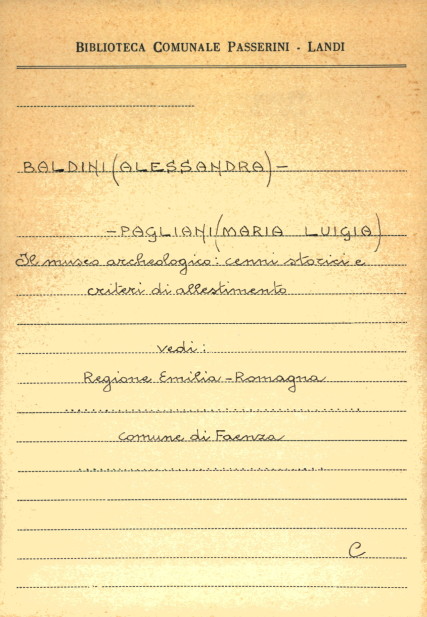 BIBLIOTECA COMUNALE PASSERINI - LANDI
BALDINI (ALESSANDRA) -
- PAGLIANI (MARIA LUIGIA)
Il museo archeologico: cenni storici e
criteri di allestimento
vedi:
Regione Emilia-Romagna
Comune di Faenza
C